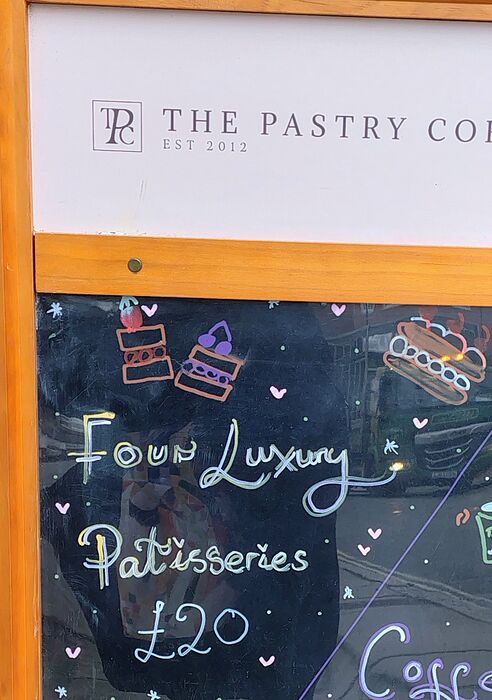 TPC
THE PASTRY COR
EST 2012
Four Luxury
Patisseries
£20
Coffe